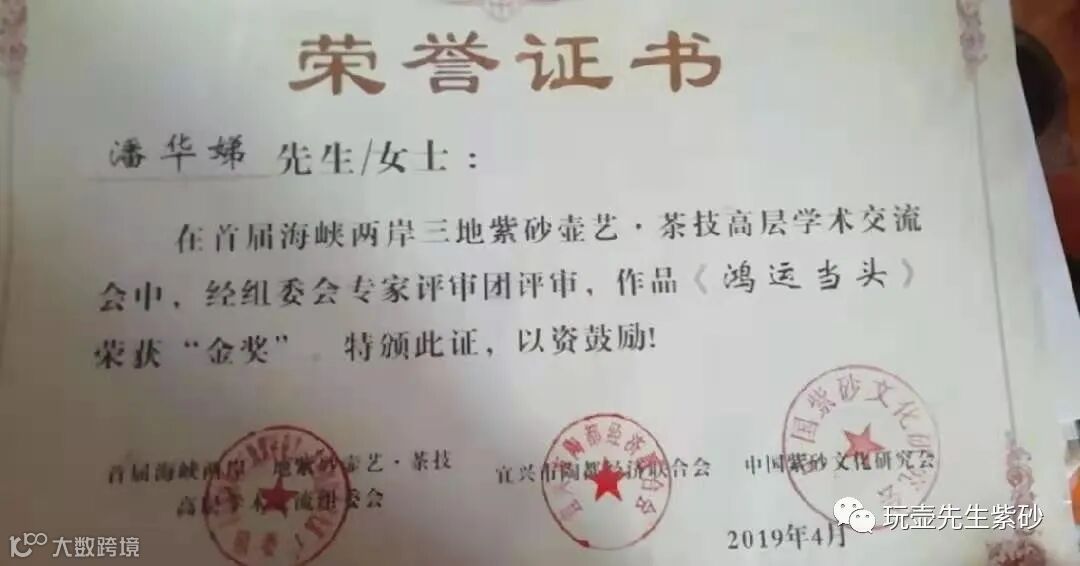 荣誉证书
潘华娣 先生/女士：
在首届海峡两岸三地紫砂壶艺·茶技高层学术交流
会中，经组委会专家评审团评审，作品《鸿运当头》
荣获“金奖” 特颁此证，以资鼓励！
首届海峡两岸 地紫砂壶艺·茶技
高层学术 流组委会
宜兴市陶都经济联合会
中国紫砂文化研究会
国紫砂文化研究会
2019年4月
玩壶先生紫砂
大数跨境